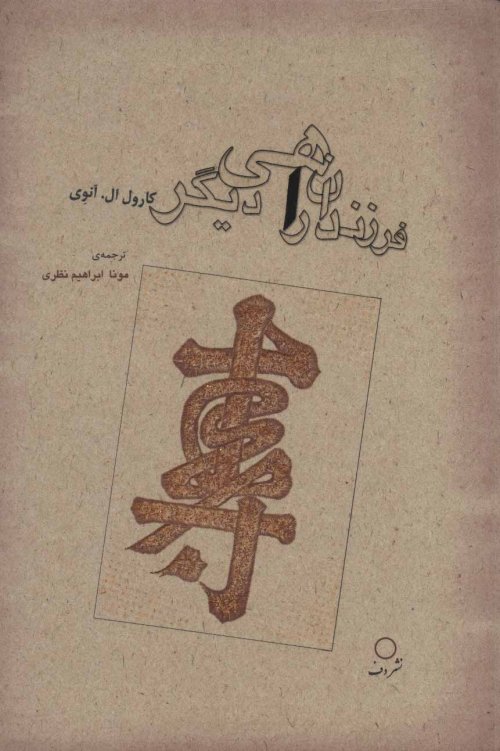 فرزندان راهی دیگر
کارول ال. آنوی
ترجمه‌ی
مونا ابراهیم نظری
نشر دف